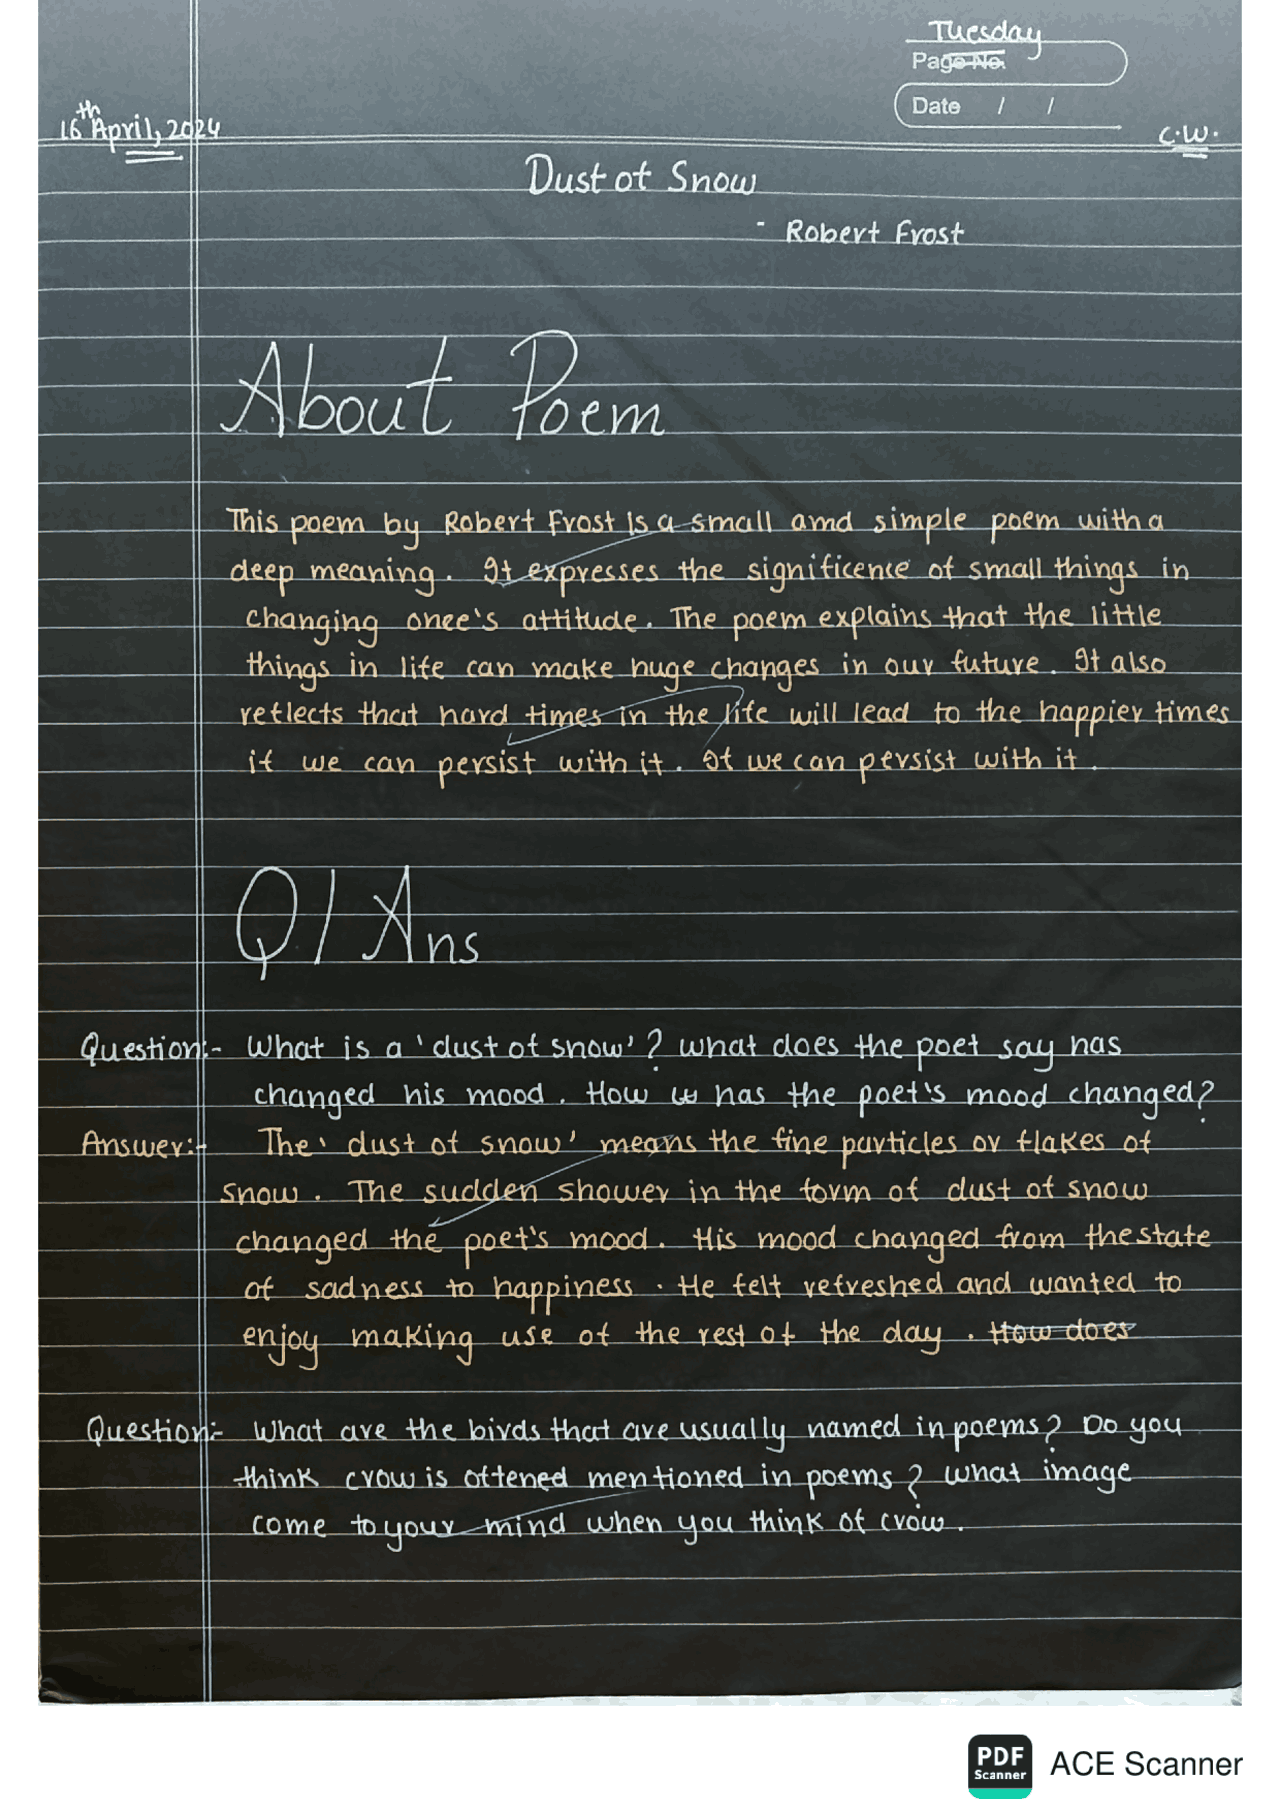 Tuesday
Page No.
Date / /
16th April, 2024
C.W.
Dust of Snow
- Robert Frost
About Poem
This poem by Robert Frost is a small amd simple poem with a
deep meaning. It expresses the significence of small things in
changing onee's attitude. The poem explains that the little
things in life can make huge changes in our future. It also
reflects that hard times in the life will lead to the happier times
if we can persist with it. If we can persist with it.
Q/Ans
Question:- What is a 'dust of snow'? what does the poet say has
changed his mood. How has the poet's mood changed?
Answer:- The 'dust of snow' means the fine particles or flakes of
snow. The sudden shower in the form of dust of snow
changed the poet's mood. His mood changed from the state
of sadness to happiness. He felt refreshed and wanted to
enjoy making use of the rest of the day. How does
Question:- What are the birds that are usually named in poems? Do you
think crow is oftened mentioned in poems? What image
come to your mind when you think of crow.
PDF
Scanner
ACE Scanner